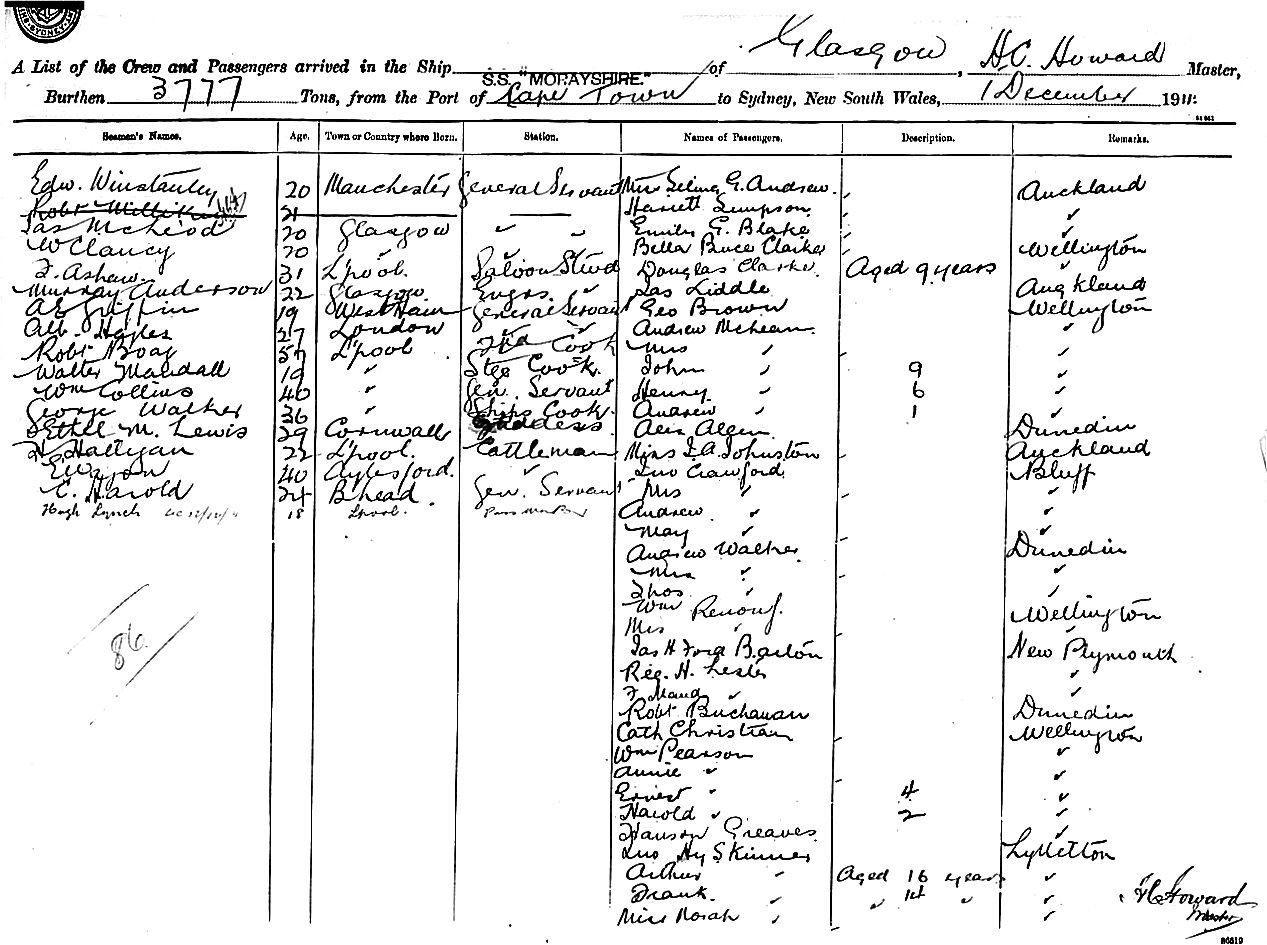 SYDNEY
Glasgow, H.C. Howard
A List of the Crew and Passengers arrived in the Ship S.S. "MORAYSHIRE." of Master,
Burthen 3777 Tons, from the Port of Cape Town to Sydney, New South Wales, 1 December 1911.
Seamen's Names. Age. Town or Country where Born. Station. Names of Passengers. Description. Remarks.
Edw. Winstanley 20 Manchester General Servant G. Andrew. Auckland
Robt 21 Harriett Simpson ✓
Jas McLeod 20 Glasgow ✓ ✓ Emily G. Blake ✓
W Clancy 20 ✓ ✓ Bella Bruce Clarke Wellington
31 L'pool. Saloon Stwd Douglas Clarke. Aged 9 years ✓
Murray Anderson 22 Glasgow Engrs. ✓ Jas Liddle Auckland
A E Griffin 19 West Ham General Servant Geo Brown Wellington
Alb. 27 London ✓ ✓ Andrew ✓
Robt Boag 57 L'pool Cook Mrs ✓ ✓
Walter Mandall 19 ✓ Cook. John ✓ 9 ✓
Wm Collins 40 ✓ Gen. Servant Henry ✓ 6 ✓
George Walker 36 ✓ Ships Cook Andrew ✓ 1 ✓
Ethel M. Lewis 29 Cornwall Alex Dunedin
H Halligan 22 L'pool. Cattleman Miss I.A. Johnston Auckland
40 Aylesford. ✓ Jno Crawford. Bluff
C. Harold 24 B'head. Gen. Servant Mrs ✓ ✓
Hugh Lynch 18 Lpool. Andrew ✓ ✓
May ✓ ✓
Andrew Walker Dunedin
Mrs ✓ ✓
Thos ✓ ✓
Wm Renouf. Wellington
86. Mrs ✓ ✓
Jas H Ford Barton New Plymouth
Reg. H. Lester ✓
F Maud ✓ ✓
Robt Buchanan Dunedin
Cath Christian Wellington
Wm Pearson ✓
Annie ✓ ✓
Ernest ✓ 4 ✓
Harold ✓ 2 ✓
Hanson Greaves ✓
Jno Hy Skinner Lyttelton
Arthur ✓ Aged 16 years ✓
Frank. ✓ 14 ✓
Miss Norah ✓ ✓
H.C. Howard
Master